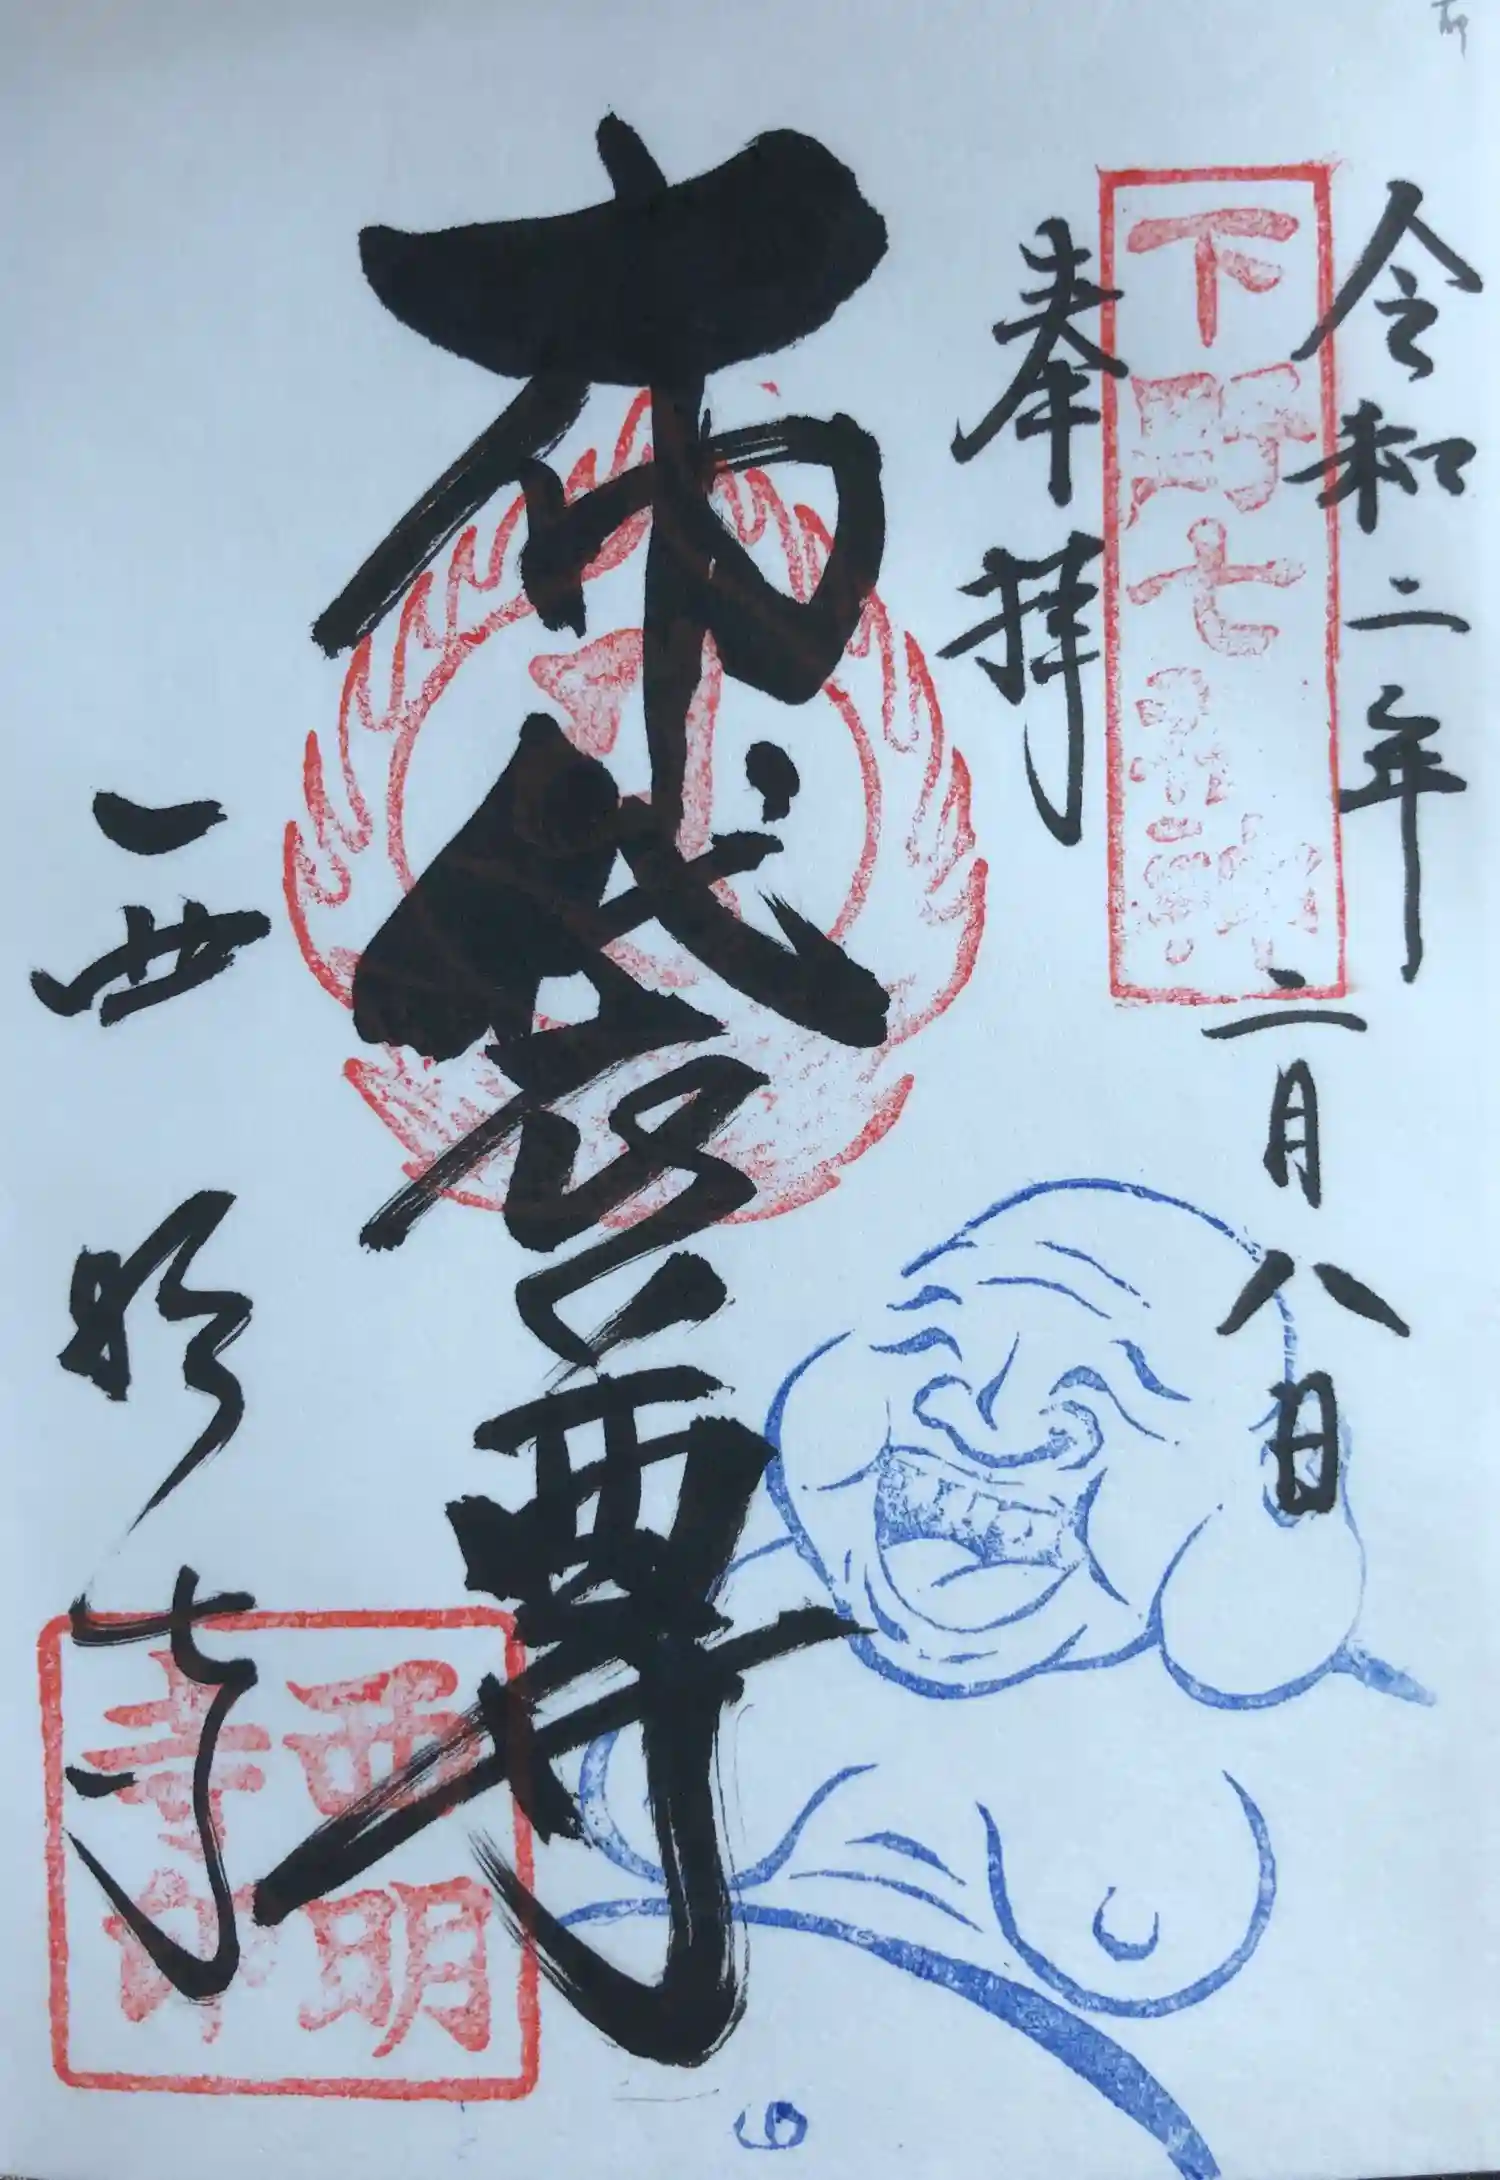 令和二年二月八日
下野七福神
奉拝
布袋尊
西明寺
西明
寺印